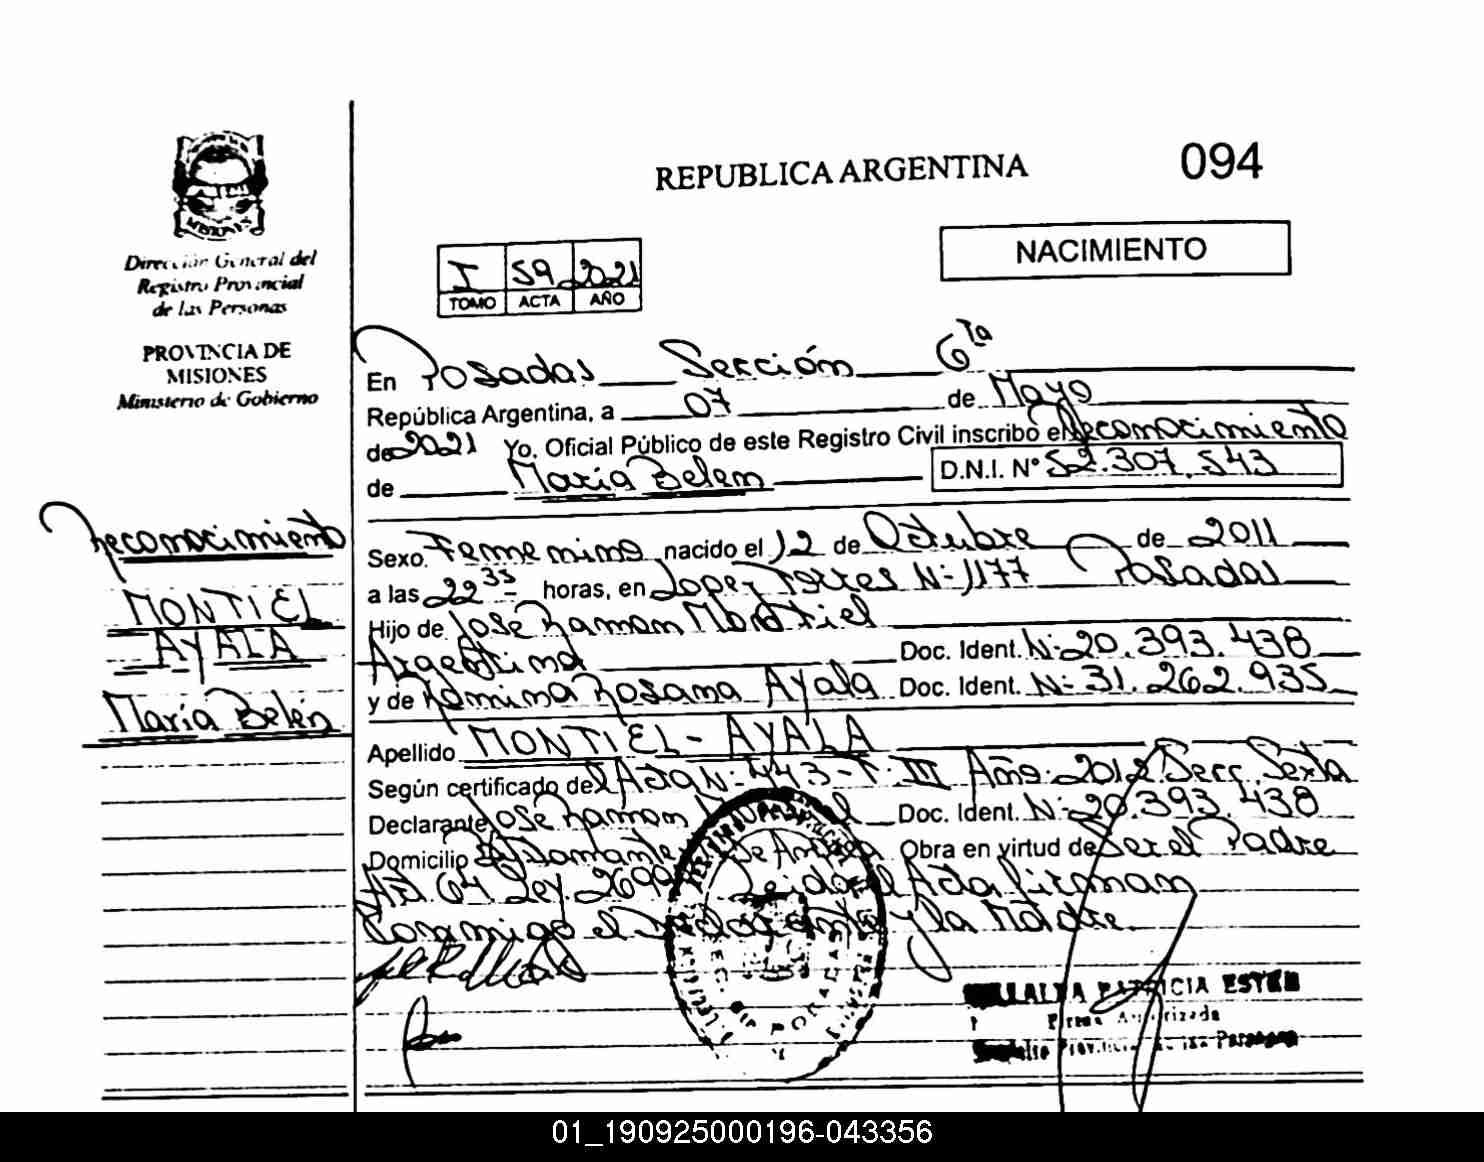 REPUBLICA ARGENTINA
094
NACIMIENTO
I 59 2021
TOMO ACTA AÑO
Dirección General del
Registro Provincial
de las Personas
PROVINCIA DE
MISIONES
Ministerio de Gobierno
Reconocimiento
MONTIEL
AYALA
María Belén
En Posadas Sección 6ta
República Argentina, a 07 de Mayo
de 2021 Yo. Oficial Público de este Registro Civil inscribo el Reconocimiento
de María Belem D.N.I. N° 52.307.543
Sexo Femenino nacido el 12 de Octubre de 2011
a las 22 35 horas, en Lopez Torres N- 1177 Posadas
Hijo de José Ramon Montiel
Argentino Doc. Ident. N- 20.393.438
y de Romina Rosana Ayala Doc. Ident. N- 31.262.935
Apellido MONTIEL - AYALA
Según certificado del Acta N- 443 - T- III Año- 2012 Secc. Sexta
Declarante José Ramon Doc. Ident. N- 20.393.438
Domicilio Obra en virtud de Ser el Padre
Art 64 Ley Acta firman
Conmigo el y la Madre.
PATRICIA ESTER
Firma Autorizada
01_190925000196-043356